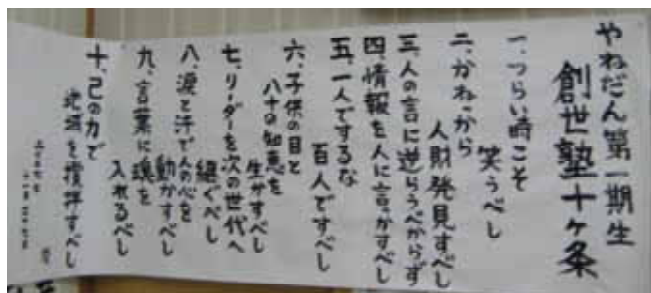 やねだん第一期生
創世塾十ヶ条
一、つらい時こそ
笑うべし
二、かねっから
人財発見すべし
三、人の言に逆らうべからず
四、情報を人に言かすべし
五、一人でするな
百人ですべし
六、子供の目と
八十の知恵を
生かすべし
七、リーダーを次の世代へ
継ぐべし
八、涙と汗で人の心を
動かすべし
九、言葉に魂を
入れるべし
十、己の力で
地域を撹拌すべし